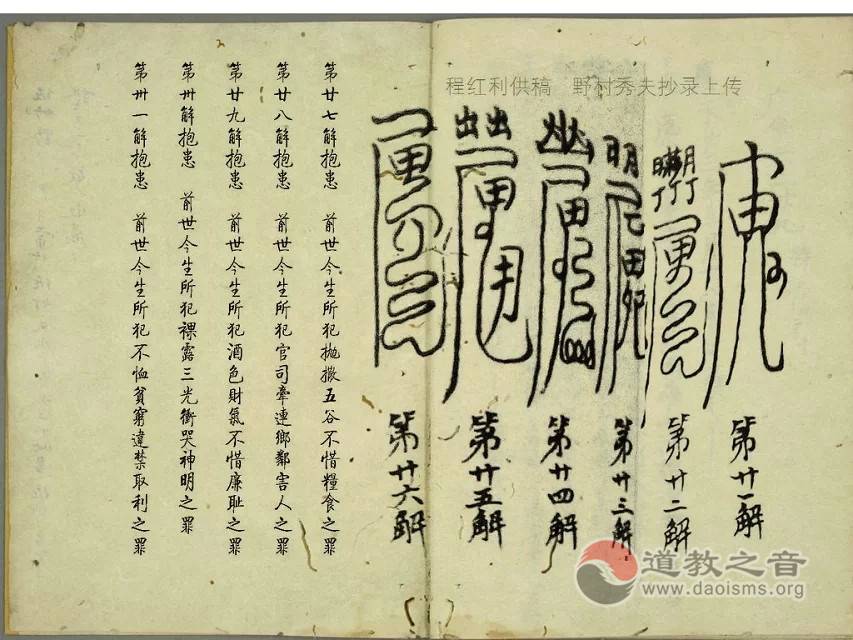 程红利供稿 野村秀夫抄录上传
第廿一解
第廿二解
第廿三解
第廿四解
第廿五解
第廿六解
第廿七解抱患 前世今生所犯抛撒五谷不惜糧食之罪
第廿八解抱患 前世今生所犯官司牽連鄉鄰害人之罪
第廿九解抱患 前世今生所犯酒色財氣不惜廉耻之罪
第卅解抱患 前世今生所犯裸露三光衝哭神明之罪
第卅一解抱患 前世今生所犯不恤貧窮違禁取利之罪
道教之音
www.daoisms.org